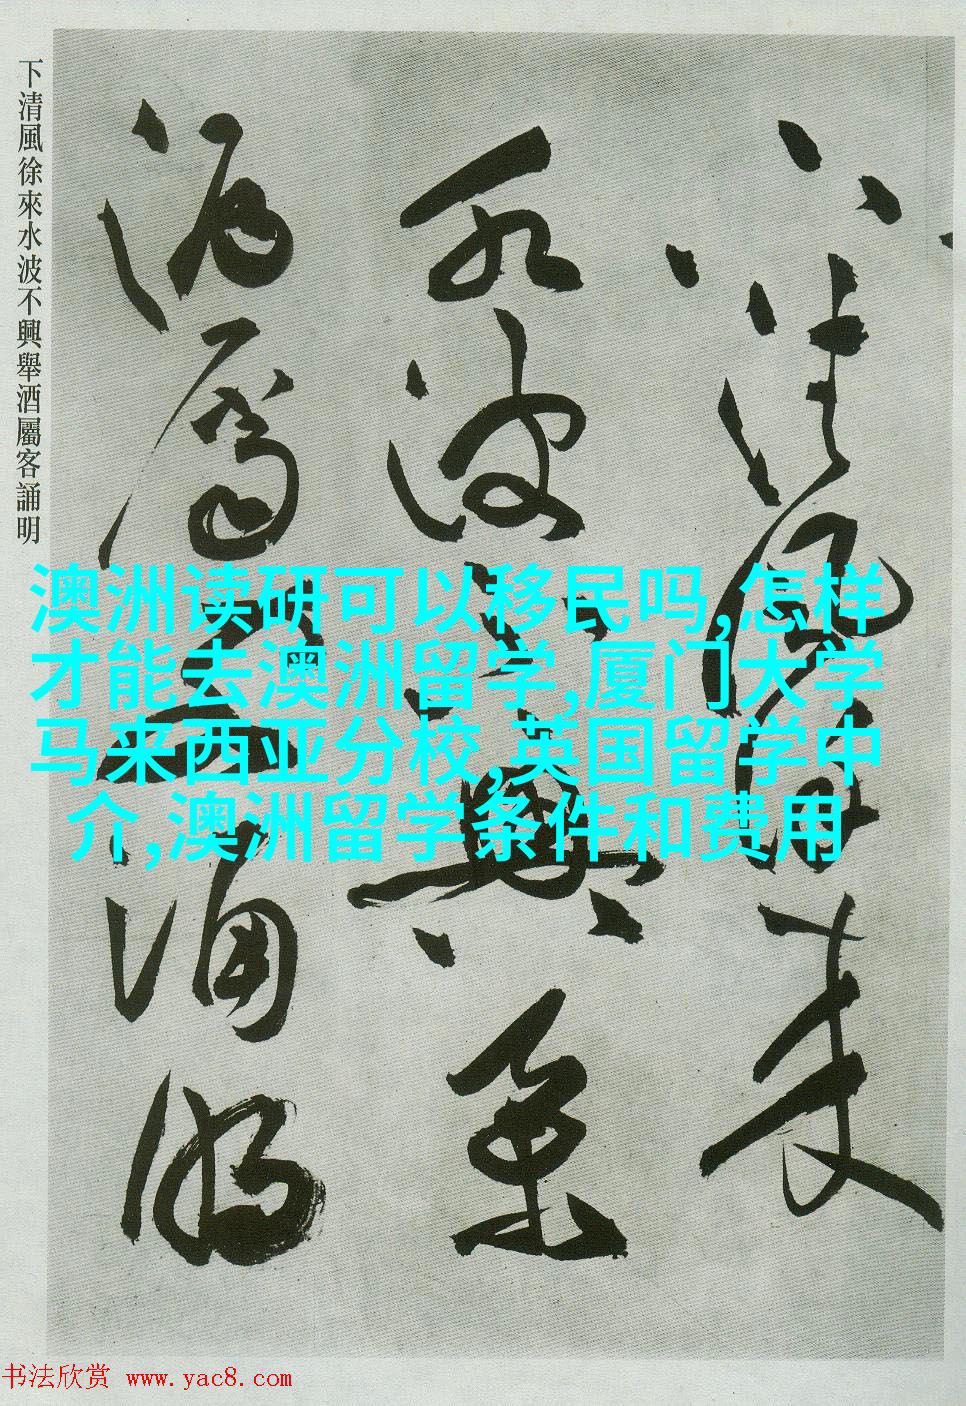 下清風徐來
水波不興舉
酒屬客誦明
下清風徐來水波不興舉酒屬客誦明
澳洲读研可以移民吗,怎样
才能去澳洲留学,厦门大学
马来西亚分校,英国留学中
介,澳洲留学条件和费用
书法欣赏 www.yac8.com